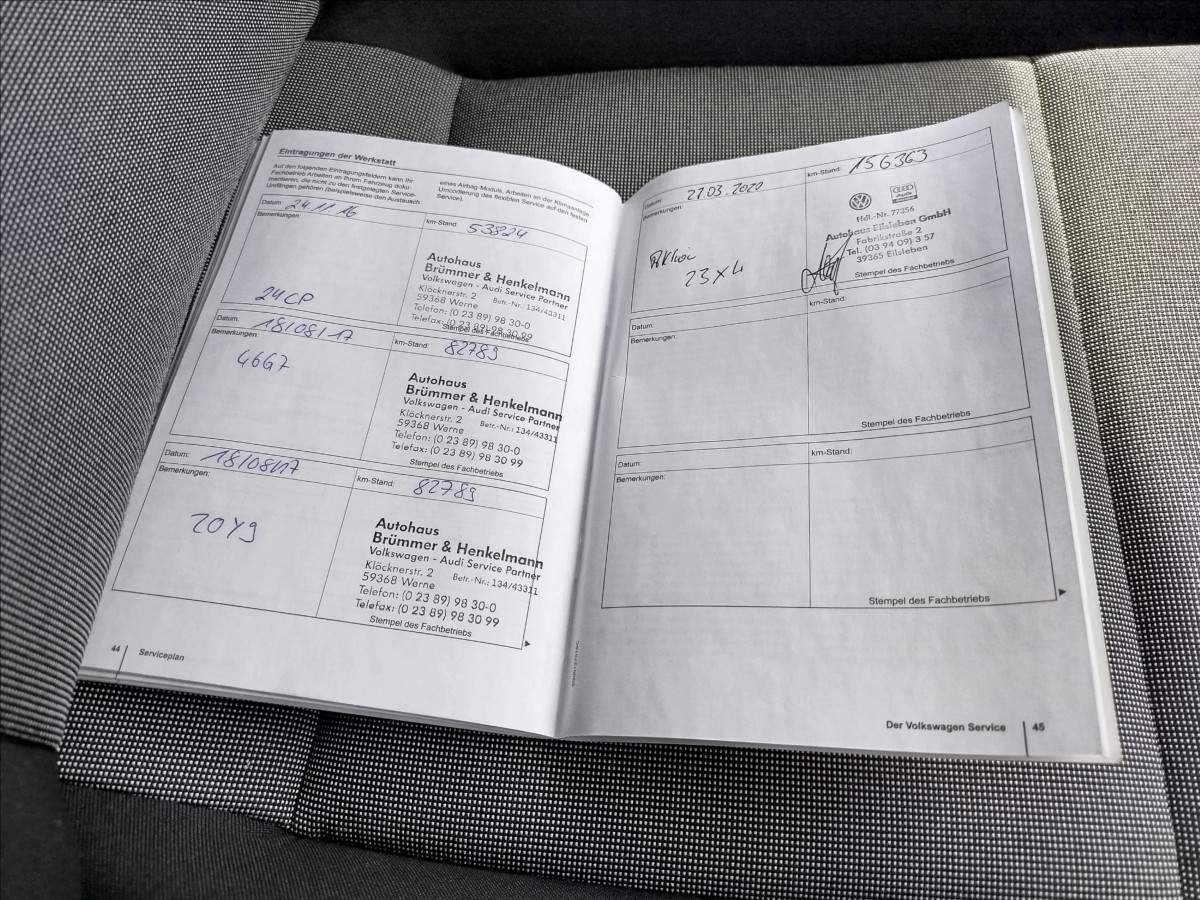 Eintragungen der Werkstatt
Auf den folgenden Eintragungsfeldern kann Ihr
Fachbetrieb Arbeiten an Ihrem Fahrzeug doku-
mentieren, die nicht zu den festgelegten Service-
Umfängen gehören (beispielsweise den Austausch
eines Airbag-Moduls, Arbeiten an der Klimaanlage,
Umcodierung des flexiblen Service auf den festen
Service).
Datum: 24.11.16
km-Stand: 53824
Bemerkungen:
24CP
Autohaus
Brümmer & Henkelmann
Volkswagen - Audi Service Partner
Klöcknerstr. 2 Betr.-Nr.: 134/43311
59368 Werne
Telefon: (0 23 89) 98 30-0
Telefax: (0 23 89) 98 30 99
Stempel des Fachbetriebs
Datum: 18/08/17
km-Stand: 82789
Bemerkungen:
46G7
Autohaus
Brümmer & Henkelmann
Volkswagen - Audi Service Partner
Klöcknerstr. 2 Betr.-Nr.: 134/43311
59368 Werne
Telefon: (0 23 89) 98 30-0
Telefax: (0 23 89) 98 30 99
Stempel des Fachbetriebs
Datum: 18/08/17
km-Stand: 82789
Bemerkungen:
20Y9
Autohaus
Brümmer & Henkelmann
Volkswagen - Audi Service Partner
Klöcknerstr. 2 Betr.-Nr.: 134/43311
59368 Werne
Telefon: (0 23 89) 98 30-0
Telefax: (0 23 89) 98 30 99
Stempel des Fachbetriebs
44 Serviceplan
Datum: 27.03.2020
km-Stand: 156363
Bemerkungen:
23X4
Hdl.-Nr. 77356
Autohaus Eilsleben GmbH
Fabrikstraße 2
Tel. (03 94 09) 3 57
39365 Eilsleben
Stempel des Fachbetriebs
Datum:
km-Stand:
Bemerkungen:
Stempel des Fachbetriebs
Datum:
km-Stand:
Bemerkungen:
Stempel des Fachbetriebs
Der Volkswagen Service 45